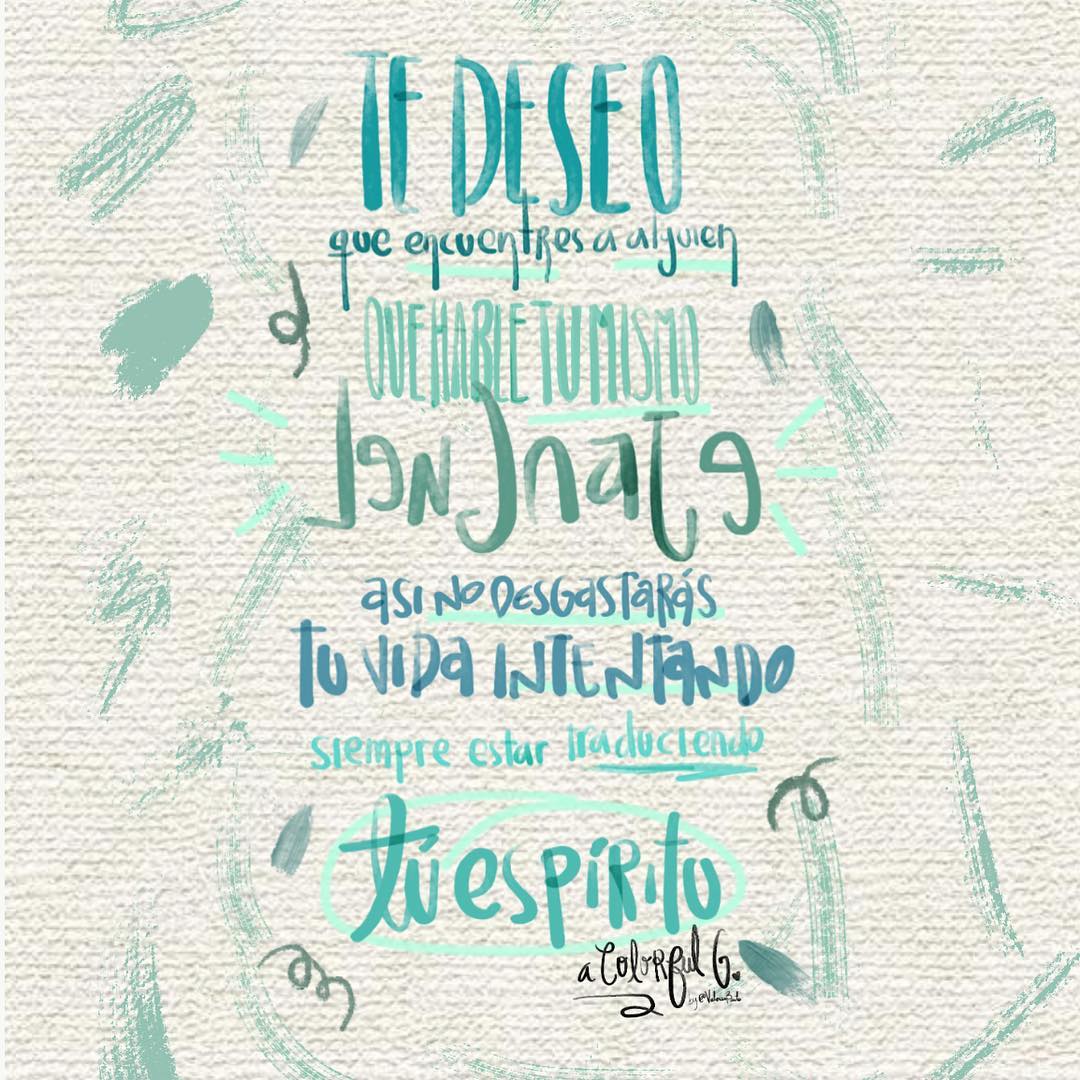 TE DESEO
que encuentRes a alguien
QUE HABLE TU MISMO
leNGuaJe
asi NO DESGasTaRás
TU VIDa INTENTaNDO
siempre estar traduciendo
tú espíRitu
a ColoRful G.
by